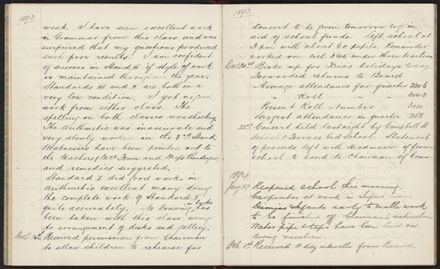 1893
weak. I have seen excellent work
in Grammar from this class and was
surprised that my questions produced
such poor results. I am confident
of success in Stand. 4 if style of work
is maintained throughout the year.
Standards III and 2 are both in a
very low condition. I got no good
work from either class. The
spelling in both classes was shocking
The Arithmetic was inaccurate and
very slowly worked in the 3rd Stand.
Weaknesses have been pointed out to
the teachers, and Miss
and remedies suggested.
Standard 1 did good work in
arithmetic excellent many doing
the complete work of Standard 1
quite accurately. No Drawing has
been taken with this class owing
to arrangement of desks and gallery.
Received permission from Chairman
to allow children to rehearse for
1893
concert to be given tomorrow
in aid of school funds. Left school at
3 pm with about 60 pupils. Remainder
worked on till 3.45 under three teachers
Broke up for Xmas holidays today.
Forwarded returns to Board
Average attendance for quarter
Present Roll Number
Largest attendance in quarter 258
22nd Concert held last night by Campbell St
School & Terrace End School. Statement
of proceeds left with Headmaster of former
school to hand to Chairman of Com.
1894
Jany 29 Reopened school this morning.
Carpenter at work in
Infants early to enable work
to be finished
Water pipe & taps have been laid on
during vacation.
Feb 1st Received from Board.